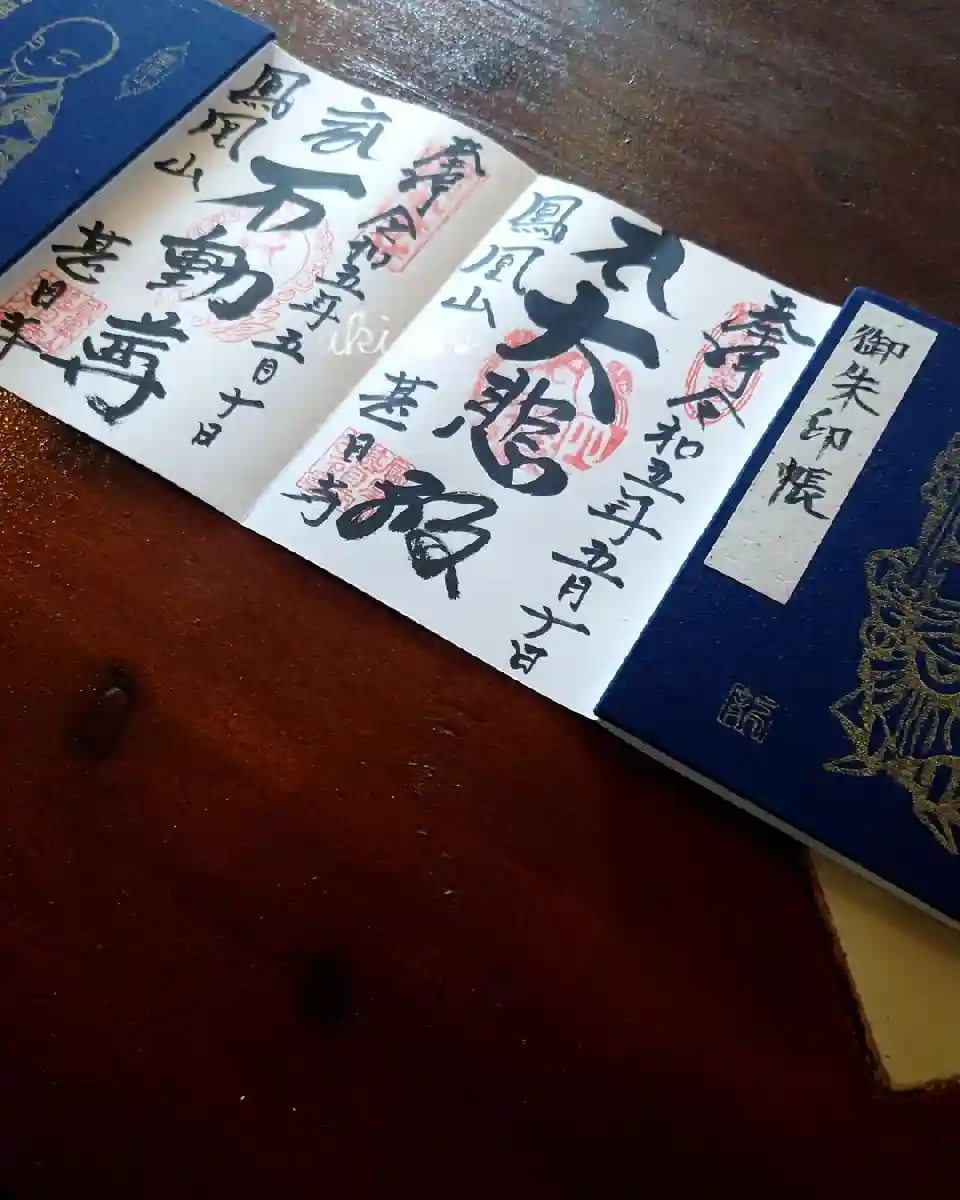 御朱印帳
奉拝 令和五年五月十日
大悲殿
鳳凰山 甚目寺
奉拝 令和五年五月十日
不動尊
鳳凰山 甚目寺